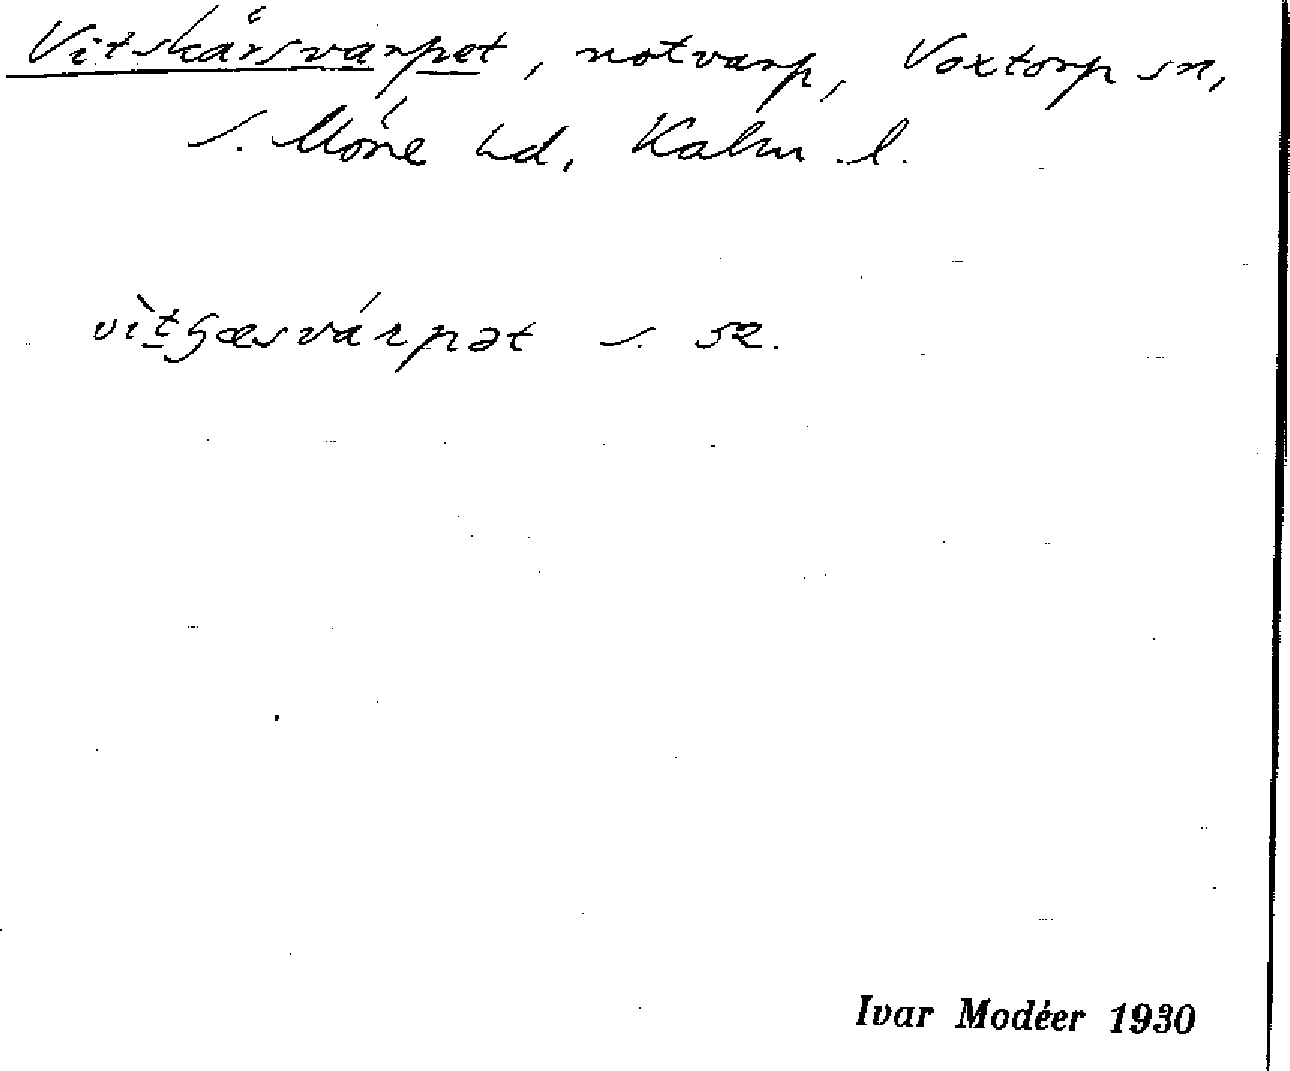 Vitskärsvarpet, notvarp, Voxtorp sn,
s. Möre hd, Kalm. l.
s. 52.
Ivar Modéer 1930